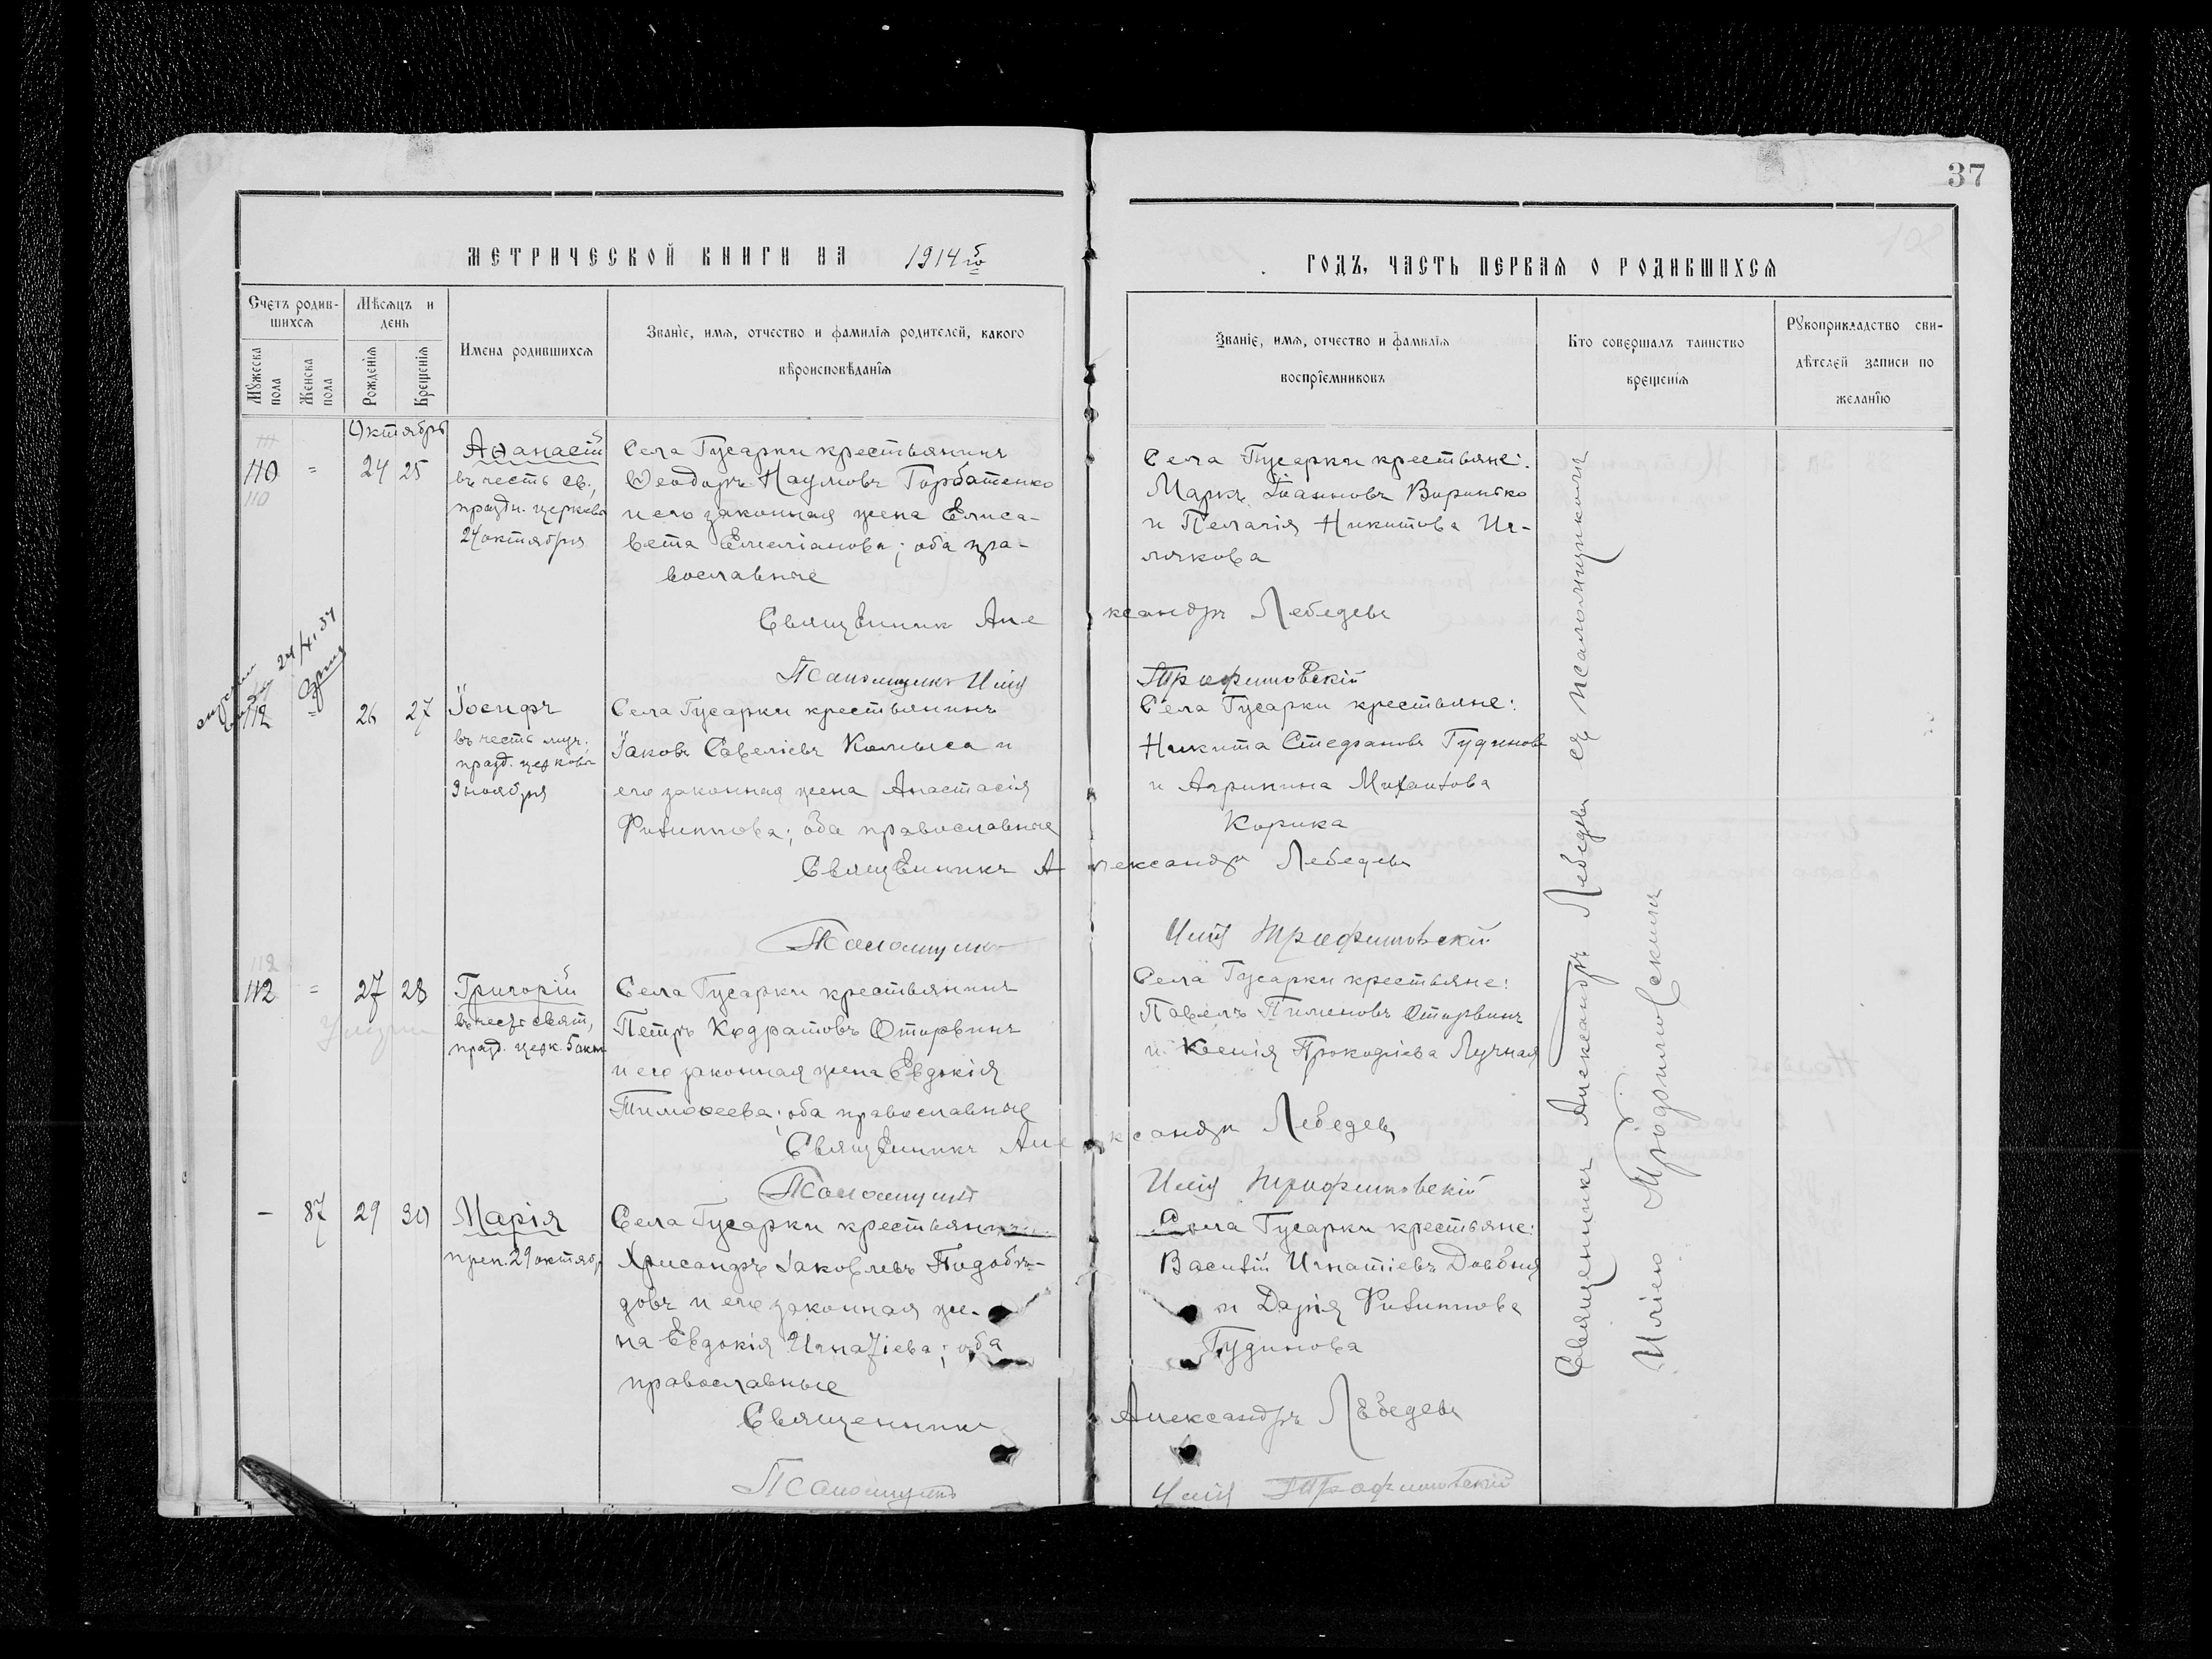 37
МЕТРИЧЕСКОЙ КНИГИ НА 1914 го
ГОДЪ, ЧАСТЬ ПЕРВАЯ О РОДИВШИХСЯ
Счетъ родив-
шихся
Мѣсяцъ и
день
Мужеска
пола
Женска
пола
Рожденія
Крещенія
Имена родившихся
Званіе, имя, отчество и фамилія родителей, какого
вѣроисповѣданія
Званіе, имя, отчество и фамилія
воспріемниковъ
Кто совершалъ таинство
крещенія
Рукоприкладство сви-
дѣтелей записи по
желанію
Октябрь
110
110
=
24 25
Аѳанасій
въ честь св.,
праздн. церковью
24 октября
Села Гусарки крестьянинъ
Ѳеодоръ Наумовъ Горбатенко
и его законная жена Елиса-
вета Емеліанова; оба пра-
вославные
Села Гусарки крестьяне:
Маркъ Іоанновъ
и Пелагія Никитова
Священникъ Александръ Лебедевъ
Псаломщикъ Илія Трофимовскій
24/4. 37
112
=
26 27
Іосифъ
въ честь муч.
празд. церковью
3 ноября
Села Гусарки крестьянинъ
Іаковъ Савеліевъ Колтыса и
его законная жена Анастасія
Филиппова; оба православные
Села Гусарки крестьяне:
Никита Стефановъ Гудиновъ
и Агрипина Михаилова
Корика
Священникъ Александръ Лебедевъ
Псаломщикъ Илія Трофимовскій
112
112
=
27 28
Григорій
въ честь свят,
празд. церк. 5 окт
Села Гусарки крестьянинъ
Петръ Кодратовъ Оторвинъ
и его законная жена Евдокія
Тимоѳеева; оба православные
Села Гусарки крестьяне:
Павелъ Пименовъ Оторвинъ
и Ксенія Прокофіева Лучная
Священникъ Александръ Лебедевъ
Псаломщикъ Илія Трофимовскій
–
87
29 30
Марія
преп. 29 октяб.
Села Гусарки крестьянинъ
Хрисанфъ Іаковлевъ Подобѣ-
довъ и его законная же-
на Евдокія Игнатіева; оба
православные
Села Гусарки крестьяне:
Василій Игнатіевъ Довбня
и Дарія Филиппова
Гудинова
Священникъ Александръ Лебедевъ
Псаломщикъ Илія Трофимовскій
Священникъ Александръ Лебедевъ съ псаломщикомъ
Иліею Трофимовскимъ